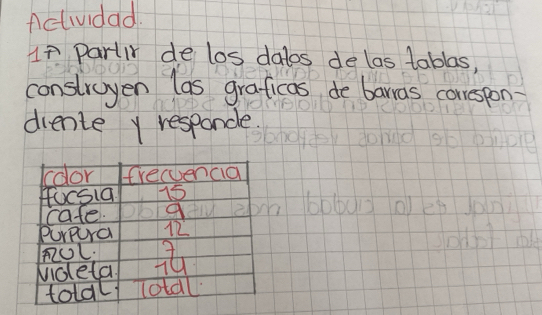 Actividad.
1 A Partir de los datos de las tablas,
construyen las graficas de barras correspon-
diente y responde.
color frecuencia
fucsia 15
cafe. 9
Purpura 12
Azul. 7
violeta. 14
total. Total.